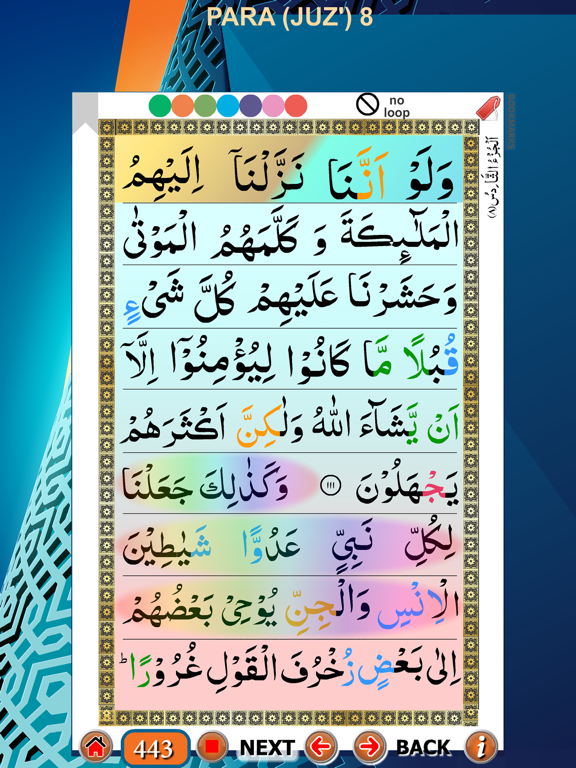 PARA (JUZ') 8
no
loop
BOOKMARKS
وَلَوْ اَنَّنَا نَزَّلْنَاۤ اِلَيْهِمُ
الْمَلٰٓىِٕكَةَ وَ كَلَّمَهُمُ الْمَوْتٰى
وَحَشَرْنَا عَلَيْهِمْ كُلَّ شَیْءٍ
قُبُلًا مَّا كَانُوْا لِيُؤْمِنُوْۤا اِلَّاۤ
اَنْ يَّشَآءَ اللّٰهُ وَلٰكِنَّ اَكْثَرَهُمْ
يَجْهَلُوْنَ ۝١١١ وَكَذٰلِكَ جَعَلْنَا
لِكُلِّ نَبِيٍّ عَدُوًّا شَيٰطِيْنَ
الْاِنْسِ وَالْجِنِّ يُوْحِيْ بَعْضُهُمْ
اِلٰى بَعْضٍ زُخْرُفَ الْقَوْلِ غُرُوْرًا ؕ
443 NEXT BACK i